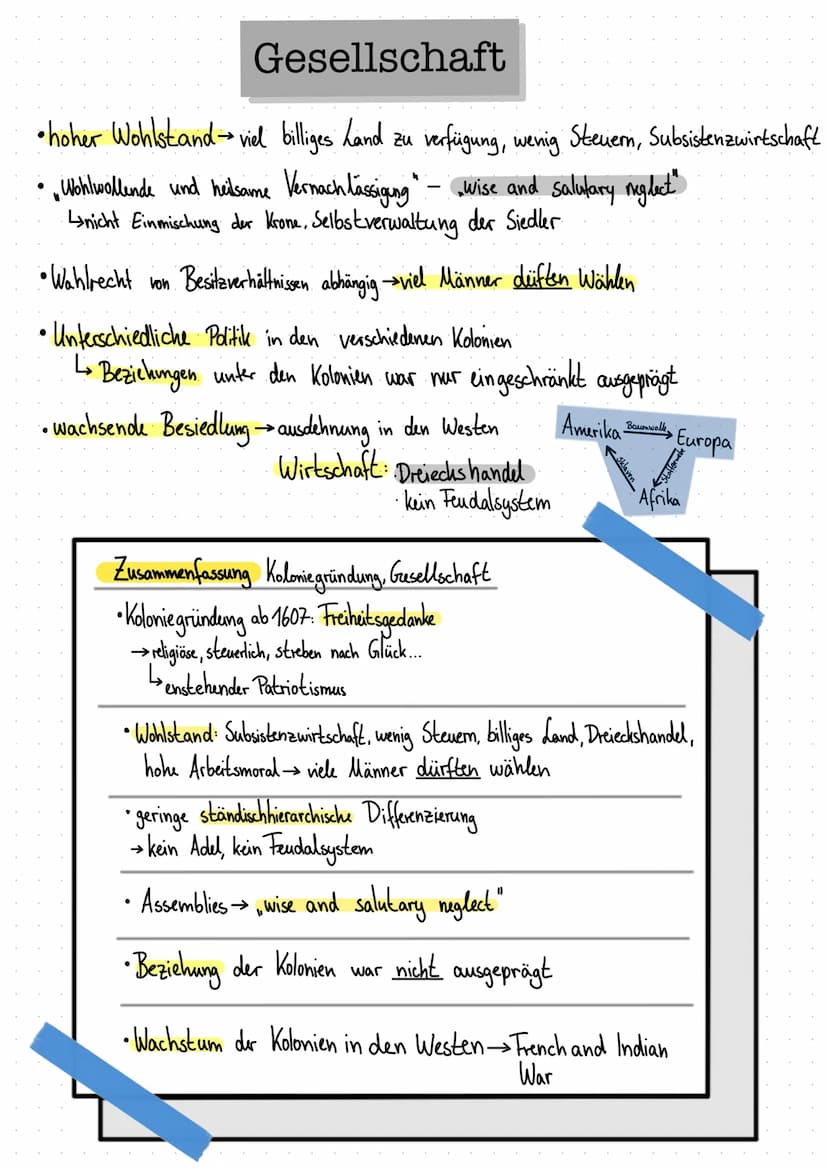 Gesellschaft
• hoher Wohlstand → viel billiges Land zu verfügung, wenig Steuern, Subsistenzwirtschaft
• „Wohlwollende und heilsame Vernachlässigung" – „wise and salutary neglect"
↳ nicht Einmischung der Krone, Selbstverwaltung der Siedler
• Wahlrecht von Besitzverhältnissen abhängig → viel Männer düften Wählen
• Unterschiedliche Politik in den verschiedenen Kolonien
↳ Beziehungen unter den Kolonien war nur eingeschränkt ausgeprägt
• wachsende Besiedlung → ausdehnung in den Westen
Wirtschaft: Dreieckshandel
· kein Feudalsystem
Amerika Baumwolle → Europa
Sklaven
Afrika
Zusammenfassung Koloniegründung, Gesellschaft
• Koloniegründung ab 1607: Freiheitsgedanke
→ religiöse, steuerlich, streben nach Glück...
↳ enstehender Patriotismus
• Wohlstand: Subsistenzwirtschaft, wenig Steuern, billiges Land, Dreieckshandel,
hohe Arbeitsmoral → viele Männer dürften wählen
• geringe ständischhierarchische Differenzierung
→ kein Adel, kein Feudalsystem
• Assemblies → „wise and salutary neglect"
• Beziehung der Kolonien war nicht ausgeprägt
• Wachstum der Kolonien in den Westen → French and Indian
War